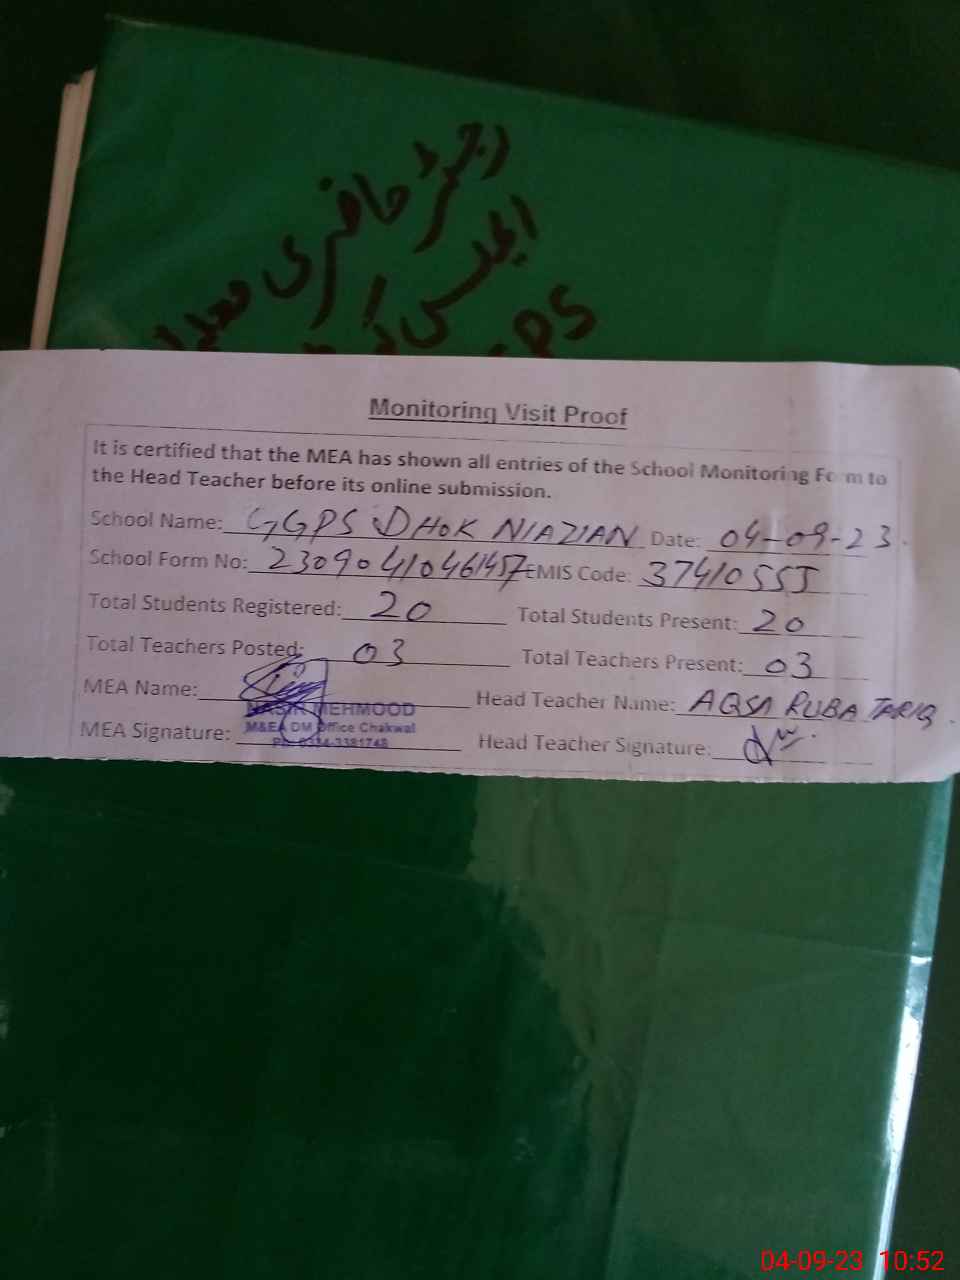 رجسٹر حاضری
GPS
Monitoring Visit Proof
It is certified that the MEA has shown all entries of the School Monitoring Form to
the Head Teacher before its online submission.
School Name: GGPS DHOK NIAZIAN Date: 04-09-23
School Form No: EMIS Code:
Total Students Registered: 20 Total Students Present: 20
Total Teachers Posted: 03 Total Teachers Present: 03
MEA Name: Head Teacher Name: AQSA RUBA TARIQ
NASIR MEHMOOD
M&EA DM Office Chakwal
MEA Signature: Head Teacher Signature:
04-09-23 10:52